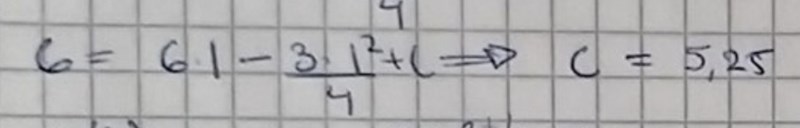 6 = 6·1 − 3·1²/4 + C ⇒ C = 5,25